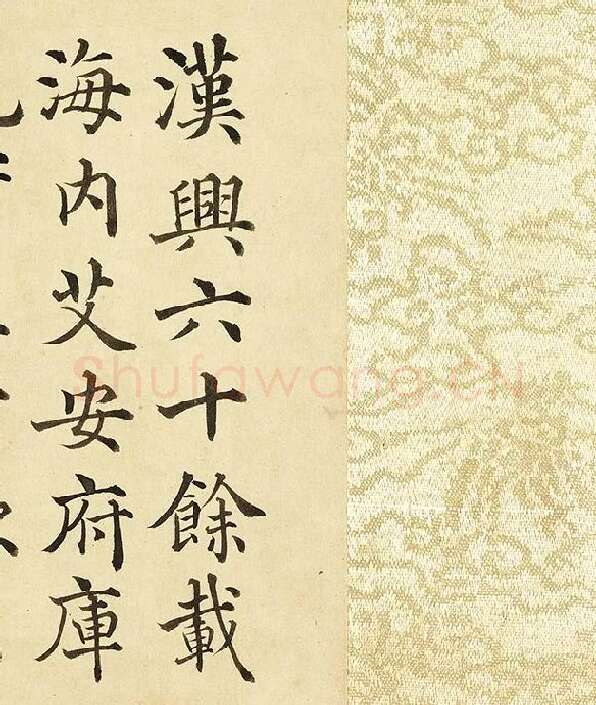 漢興六十餘載
海内艾安府庫
Shufawang.CN